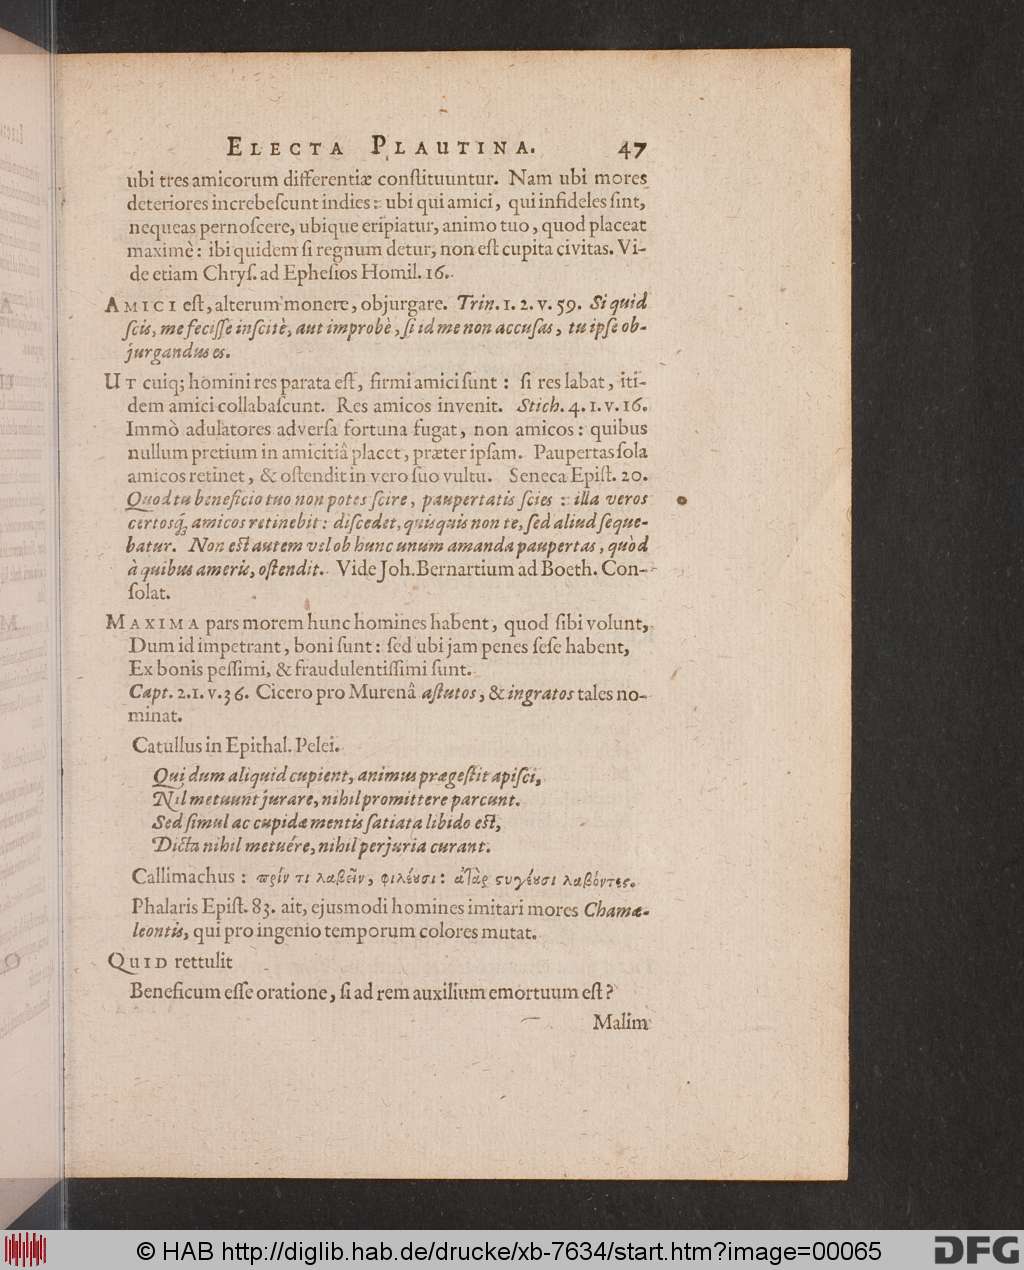 ELECTA PLAUTINA. 47
ubi tres amicorum differentiæ conſtituuntur. Nam ubi mores
deteriores increbeſcunt indies: ubi qui amici, qui infideles ſint,
nequeas pernoſcere, ubique eripiatur, animo tuo, quod placeat
maximè: ibi quidem ſi regnum detur, non eſt cupita civitas. Vi-
de etiam Chryſ. ad Epheſios Homil. 16.
AMICI eſt, alterum monere, objurgare. Trin. 1. 2. v. 59. Si quid
ſcis, me feciſſe inſcitè, aut improbè, ſi id me non accuſas, tu ipſe ob-
jurgandus es.
UT cuiq; homini res parata eſt, firmi amici ſunt: ſi res labat, iti-
dem amici collabaſcunt. Res amicos invenit. Stich. 4. 1. v. 16.
Immò adulatores adverſa fortuna fugat, non amicos: quibus
nullum pretium in amicitiâ placet, præter ipſam. Paupertas ſola
amicos retinet, & oſtendit in vero ſuo vultu. Seneca Epiſt. 20.
Quod tu beneficio tuo non potes ſcire, paupertatis ſcies: illa veros
certosq́; amicos retinebit: diſcedet, quisquis non te, ſed aliud ſeque-
batur. Non eſt autem vel ob hunc unum amanda paupertas, quòd
à quibus ameris, oſtendit. Vide Joh. Bernartium ad Boeth. Con-
ſolat.
MAXIMA pars morem hunc homines habent, quod ſibi volunt,
Dum id impetrant, boni ſunt: ſed ubi jam penes ſeſe habent,
Ex bonis peſſimi, & fraudulentiſſimi ſunt.
Capt. 2. 1. v. 36. Cicero pro Murenâ aſtutos, & ingratos tales no-
minat.
Catullus in Epithal. Pelei.
Qui dum aliquid cupient, animus prægeſtit apiſci,
Nil metuunt jurare, nihil promittere parcunt.
Sed ſimul ac cupidæ mentis ſatiata libido eſt,
Dicta nihil metuére, nihil perjuria curant.
Callimachus: πρίν τι λαβεῖν, φιλέουσι: ἀτὰρ στυγέουσι λαβόντες.
Phalaris Epiſt. 83. ait, ejusmodi homines imitari mores Chamæ-
leontis, qui pro ingenio temporum colores mutat.
QUID rettulit
Beneficum eſſe oratione, ſi ad rem auxilium emortuum eſt?
Malim
© HAB http://diglib.hab.de/drucke/xb-7634/start.htm?image=00065
DFG